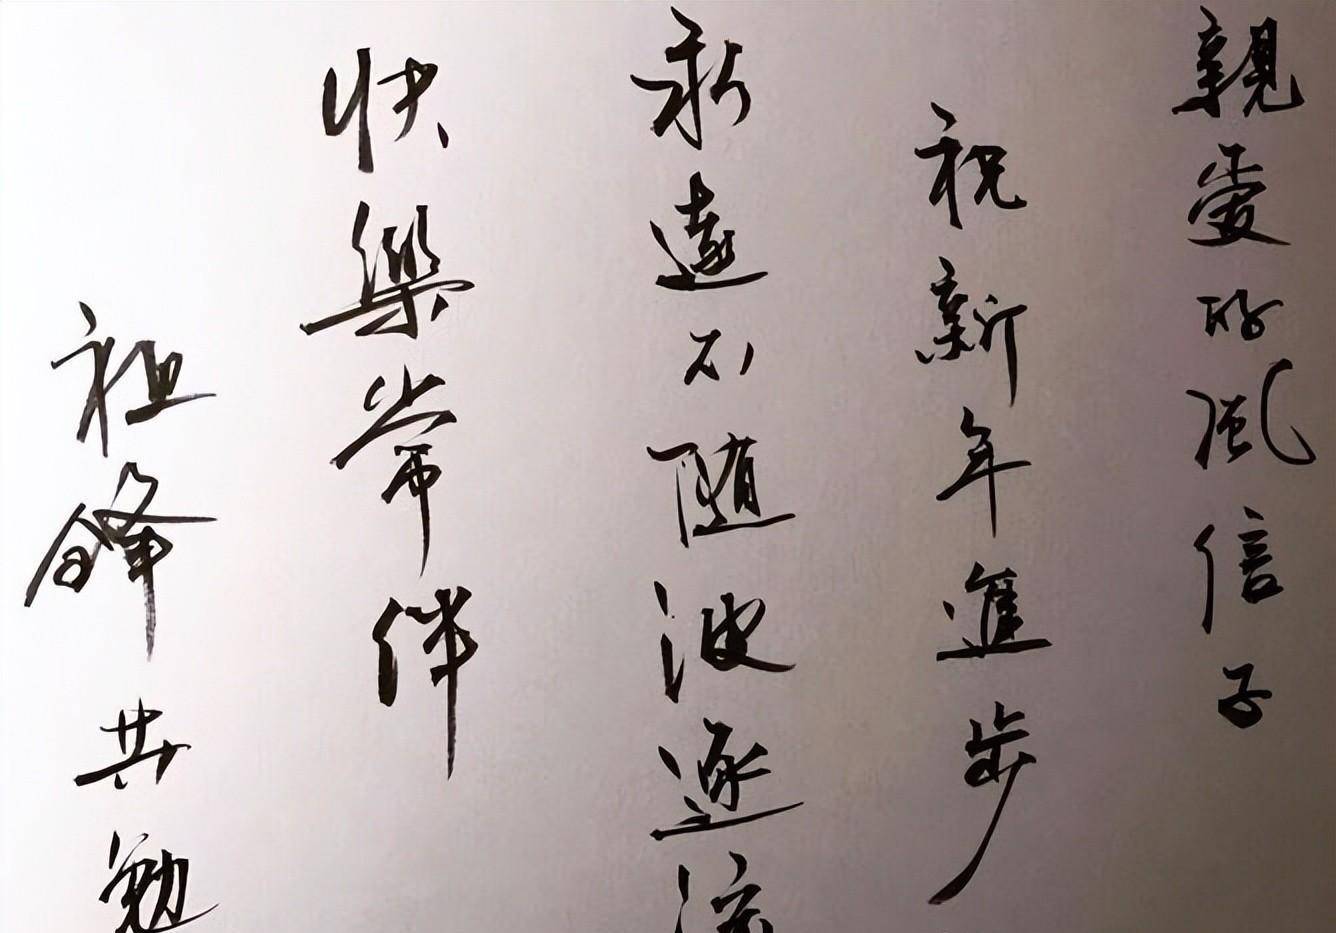 親愛的風信子
祝新年進步
永遠不隨波逐流
快樂常伴
祖鋒共勉